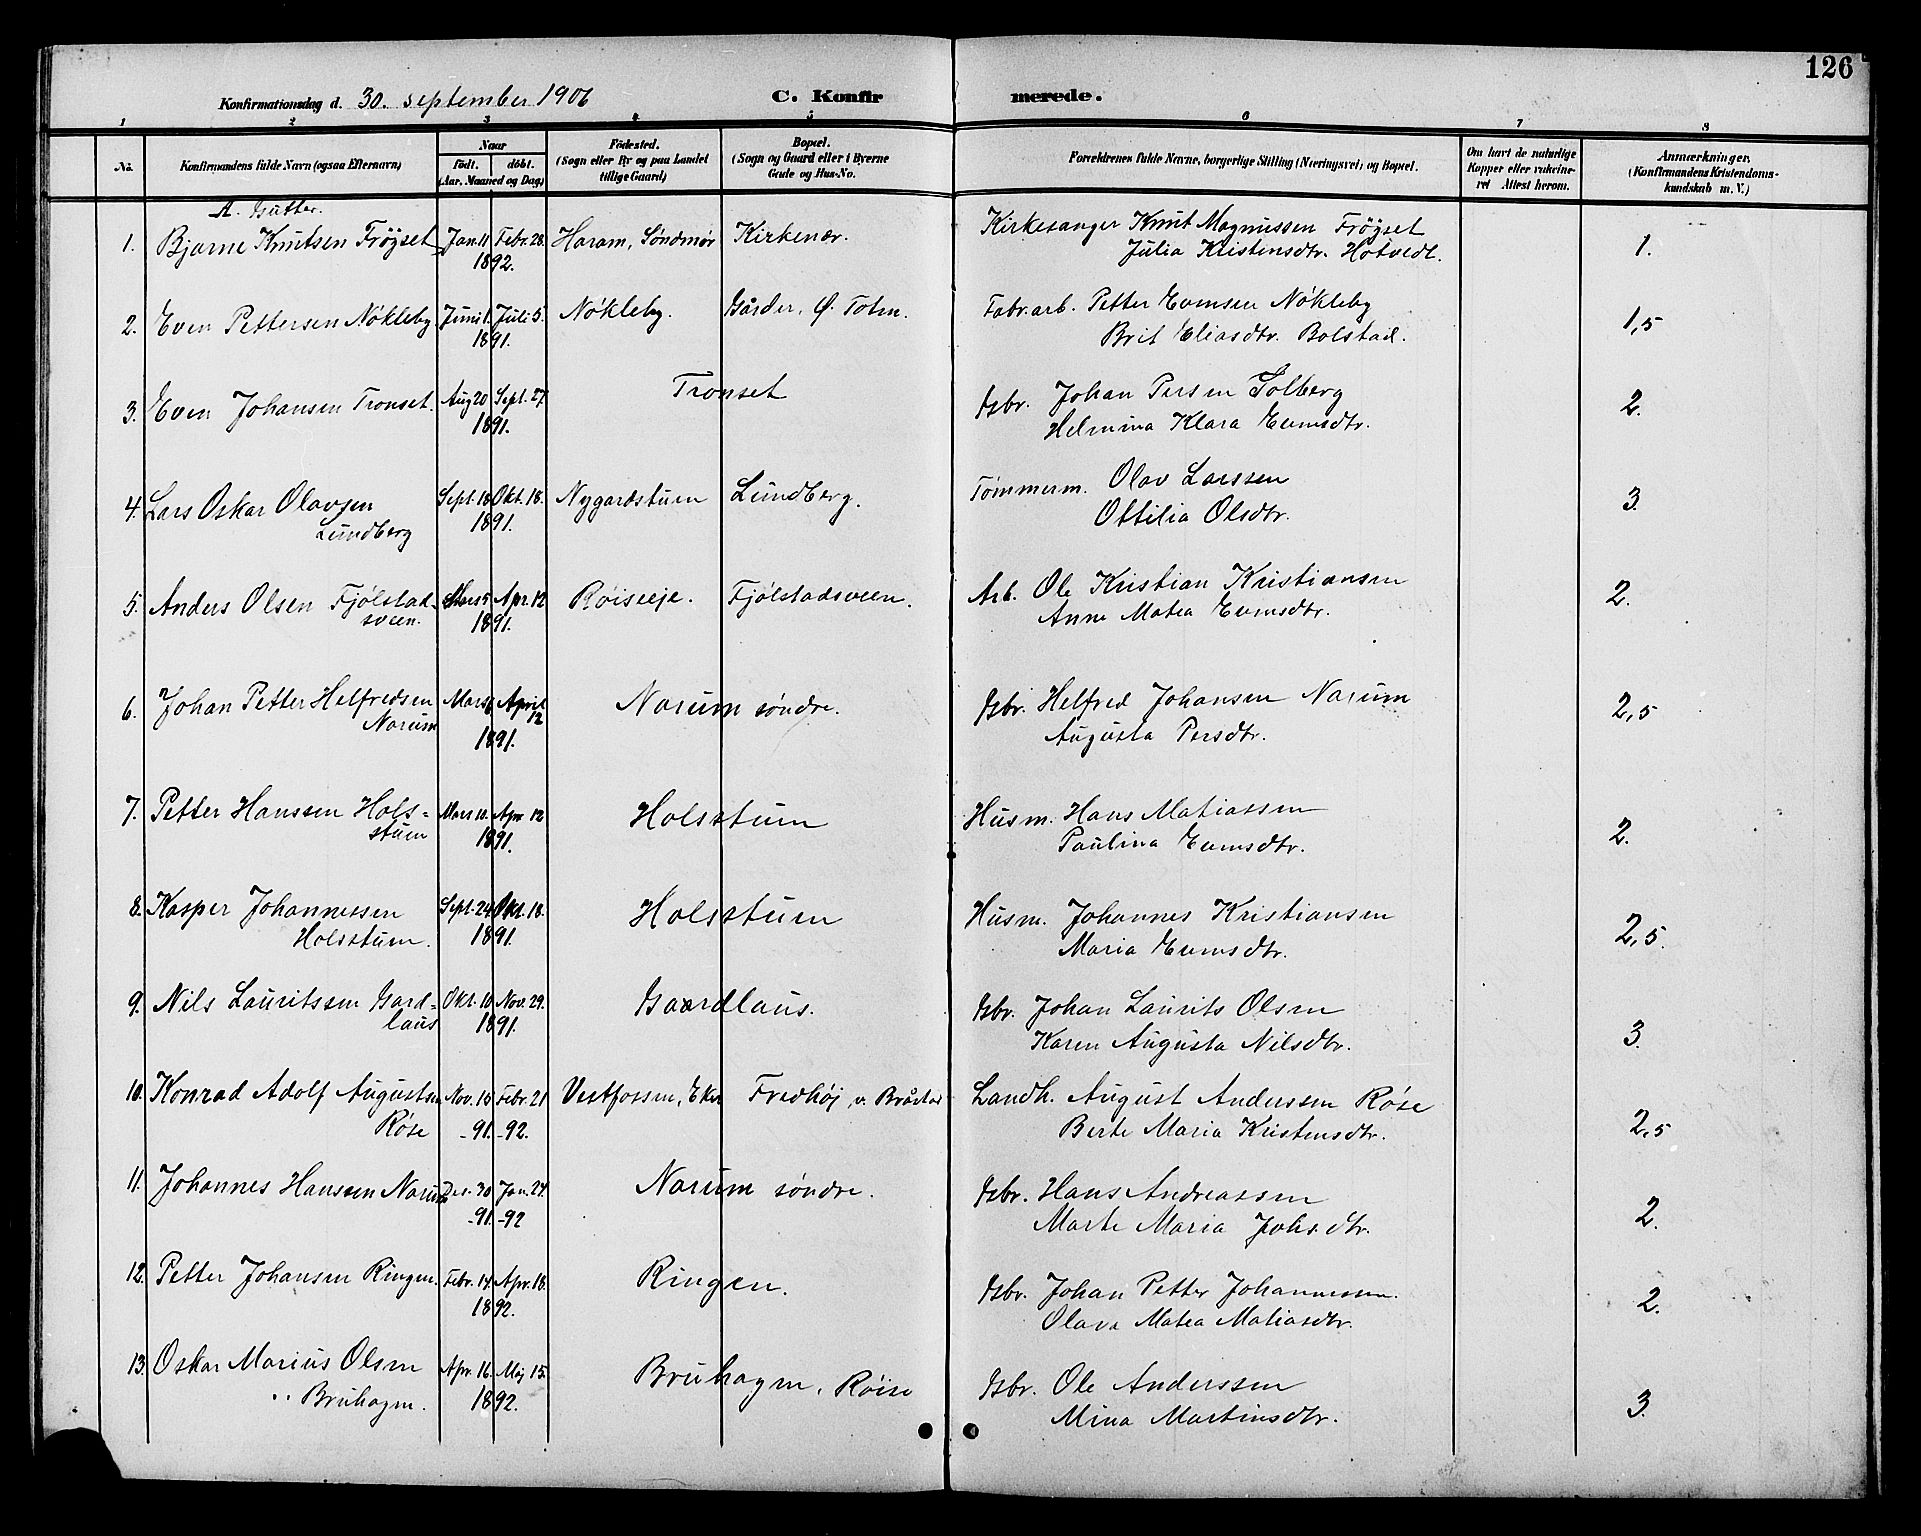 126
Konfirmationsdag d. 30. september 1906 C. Konfirmerede.
1 2 3 4 5 6 7 8
No. Konfirmandens fulde Navn (ogsaa Efternavn) Naar født. døbt. (Aar, Maaned og Dag) Fødested. (Sogn eller By og paa Landet tillige Gaard) Bopæl. (Sogn og Gaard eller i Byerne Gade og Hus-No. Forældrenes fulde Navne, borgerlige Stilling (Næringsvei) og Bopæl. Om havt de naturlige Kopper eller vakcineret Attest herom. Anmærkninger. (Konfirmandens Kristendomskundskab m. V.)
A. Gutter.
1. Bjarne Knutsen Frøyset Jan. 11 Febr. 28. Haram, Søndmør Kirkenær. Kirkesanger Knut Magnussen Frøyset 1.
1892. Julia Kristensdtr. Hotvedt.
2. Even Pettersen Nøkleby Juni 1. Juli 5. Nøkleby. Gårder, Ø. Toten. Fabr.arb. Petter Evensen Nøkleby 1,5
1891. Brit Eliasdtr. Bolstad.
3. Even Johansen Tronset. Aug 20 Sept. 27. Tronset Gbr. Johan Persen Solberg 2.
1891. Helmina Klara Evensdtr.
4. Lars Oskar Olavsen Sept. 18 Okt. 18. Nygardstuen Lundberg. Tømmerm. Olav Larssen 3.
Lundberg 1891. Ottilia Olsdtr.
5. Anders Olsen Fjølstad- Mars 5 Apr. 12 Røiseeje. Fjølstadsveen. Arb. Ole Kristian Kristiansen 2.
sveen. 1891. Anne Matea Evensdtr.
6. Johan Petter Helfredsen Mars April 12 Narum søndre. Gbr. Helfred Johansen Narum 2,5
Narum 1891. Augusta Persdtr.
7. Petter Hanssen Hols- Mars 11. Apr 12 Holsstuen Husm. Hans Matiassen 2.
stuen 1891. Paulina Evensdtr.
8. Kasper Johannessen Sept. 24 Okt. 18. Holsstuen Husm. Johannes Kristiansen 2,5.
Holsstuen. 1891. Maria Evensdtr.
9. Nils Lauritssen Gard- Okt. 10 Nov. 29. Gaardlaus. Gbr. Johan Laurits Olsen 3.
laus 1891. Karen Augusta Nilsdtr.
10. Konrad Adolf Augustsen Nov. 15 Febr. 21 Vestfossen, Eker Fredhøj, v. Bråstad Landh. August Anderssen Røse 2,5
Røse -91. -92. Berte Maria Kristensdtr.
11. Johannes Hanssen Narum Des. 30 Jan. 24. Narum søndre. Gbr. Hans Andreassen 2.
-91. -92 Marte Maria Johsdtr.
12. Petter Johansen Ringen. Febr. 14 Apr. 18. Ringen. Gbr. Johan Petter Johannessen. 2.
1892. Olava Matea Matiasdtr.
13. Oskar Marius Olsen Apr. 16. Maj 15. Bruhagen, Røise Gbr. Ole Anderssen 3.
Bruhagen. 1892. Mina Martinsdtr.